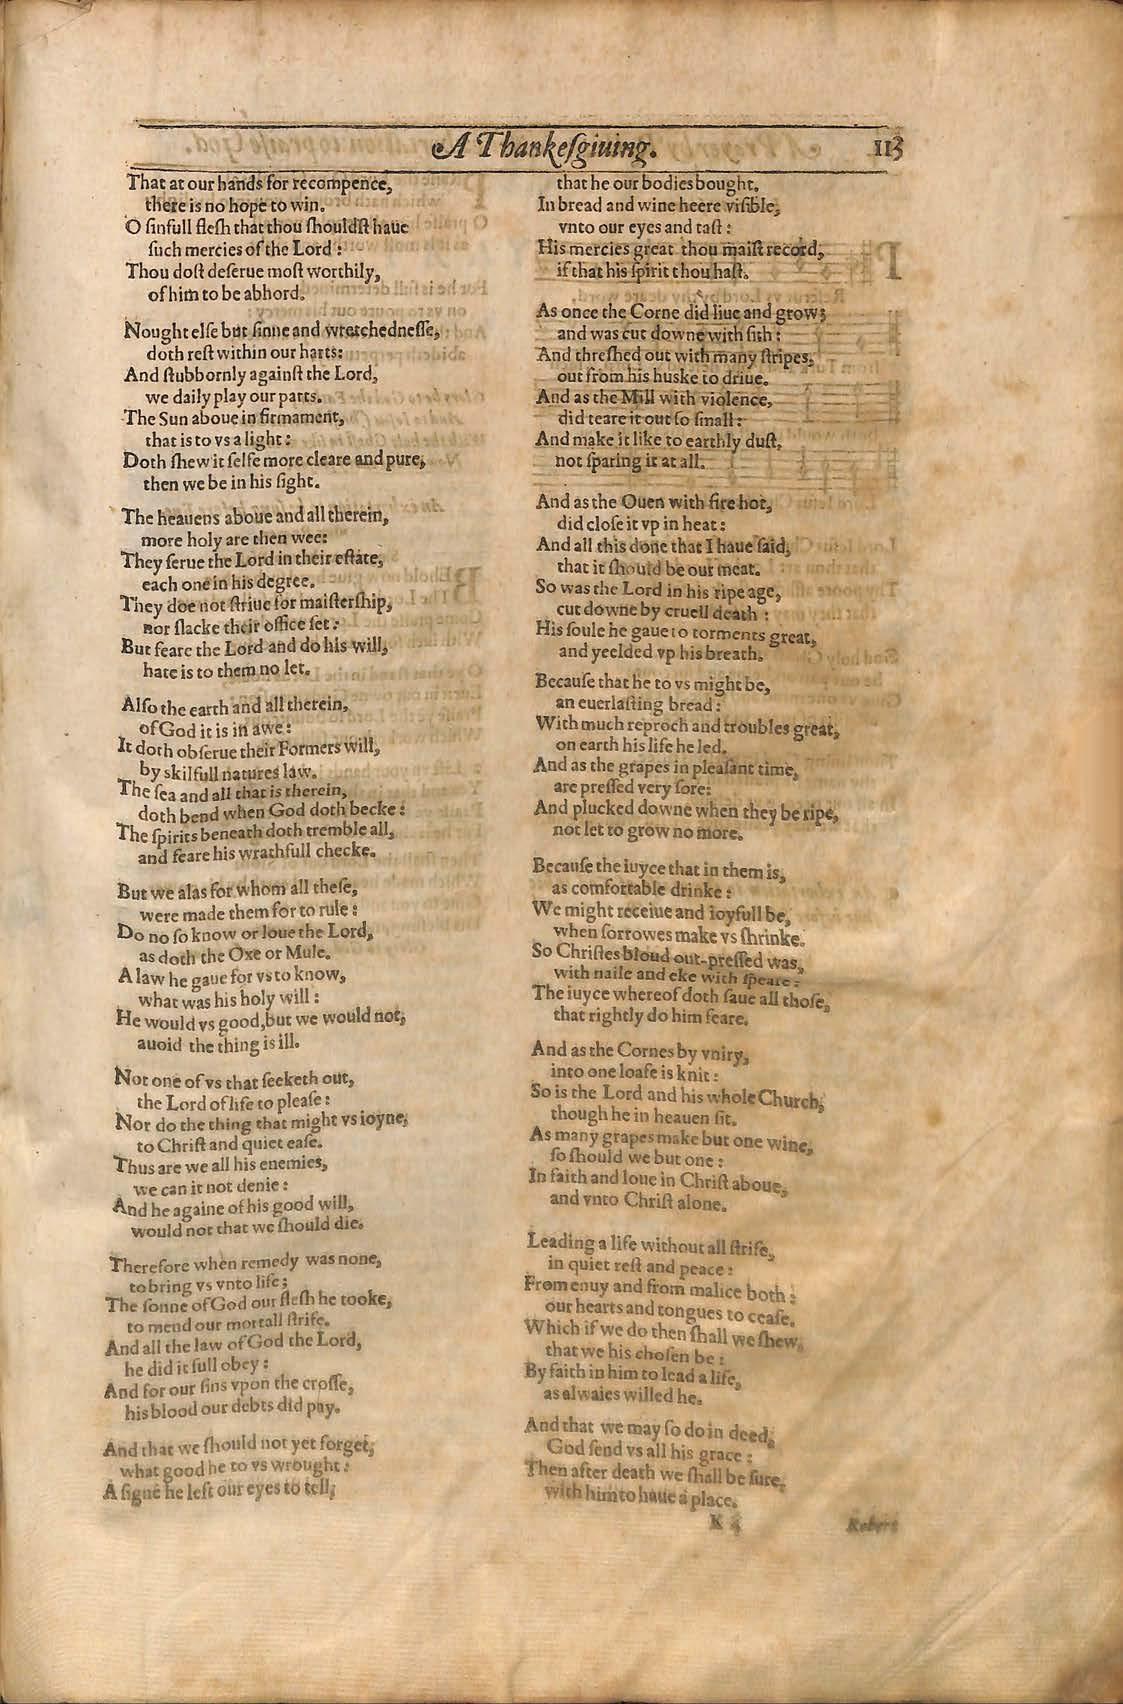 A Thankeſgiuing.
113
That at our hands for recompence,
there is no hope to win.
O ſinfull fleſh that thou ſhouldſt haue
ſuch mercies of the Lord:
Thou doſt deſerue moſt worthily,
of him to be abhord.
Nought elſe but ſinne and wretchedneſſe,
doth reſt within our harts:
And ſtubbornly againſt the Lord,
we daily play our parts.
The Sun aboue in firmament,
that is to vs a light:
Doth ſhew it ſelfe more cleare and pure,
then we be in his ſight.
The heauens aboue and all therein,
more holy are then wee:
They ſerue the Lord in their eſtate,
each one in his degree.
They doe not ſtriue for maiſterſhip,
nor ſlacke their office ſet:
But feare the Lord and do his will,
hate is to them no let.
Alſo the earth and all therein,
of God it is in awe:
It doth obſerue their Formers will,
by skilfull natures law.
The ſea and all that is therein,
doth bend when God doth becke:
The ſpirits beneath doth tremble all,
and feare his wrathfull checke.
But we alas for whom all theſe,
were made them for to rule:
Do no ſo know or loue the Lord,
as doth the Oxe or Mule.
A law he gaue for vs to know,
what was his holy will:
He would vs good, but we would not,
auoid the thing is ill.
Not one of vs that ſeeketh out,
the Lord of life to pleaſe:
Nor do the thing that might vs ioyne,
to Chriſt and quiet eaſe.
Thus are we all his enemies,
we can it not denie:
And he againe of his good will,
would not that we ſhould die.
Therefore when remedy was none,
to bring vs vnto life;
The ſonne of God our fleſh he tooke,
to mend our mortall ſtrife.
And all the law of God the Lord,
he did it full obey:
And for our ſins vpon the croſſe,
his blood our debts did pay.
And that we ſhould not yet forget,
what good he to vs wrought:
A ſigne he left our eyes to tell,
that he our bodies bought.
In bread and wine heere viſible,
vnto our eyes and taſt:
His mercies great thou maiſt record,
if that his ſpirit thou haſt.
As once the Corne did liue and grow;
and was cut downe with ſith:
And threſhed out with many ſtripes,
out from his huske to driue.
And as the Mill with violence,
did teare it out ſo ſmall:
And make it like to earthly duſt,
not ſparing it at all.
And as the Ouen with fire hot,
did cloſe it vp in heat:
And all this done that I haue ſaid,
that it ſhould be our meat.
So was the Lord in his ripe age,
cut downe by cruell death:
His ſoule he gaue to torments great,
and yeelded vp his breath.
Becauſe that he to vs might be,
an euerlaſting bread:
With much reproch and troubles great,
on earth his life he led.
And as the grapes in pleaſant time,
are preſſed very ſore:
And plucked downe when they be ripe,
not let to grow no more.
Becauſe the iuyce that in them is,
as comfortable drinke:
We might receiue and ioyfull be,
when ſorrowes make vs ſhrinke.
So Chriſtes bloud out-preſſed was,
with naile and eke with ſpeare:
The iuyce whereof doth ſaue all thoſe,
that rightly do him feare.
And as the Cornes by vnity,
into one loafe is knit:
So is the Lord and his whole Church,
though he in heauen ſit.
As many grapes make but one wine,
ſo ſhould we but one:
In faith and loue in Chriſt aboue,
and vnto Chriſt alone.
Leading a life without all ſtrife,
in quiet reſt and peace:
From enuy and from malice both:
our hearts and tongues to ceaſe.
Which if we do then ſhall we ſhew,
that we his choſen be:
By faith in him to lead a life,
as alwaies willed he.
And that we may ſo do in deed,
God ſend vs all his grace:
Then after death we ſhall be ſure,
with him to haue a place.
K 4
Robert